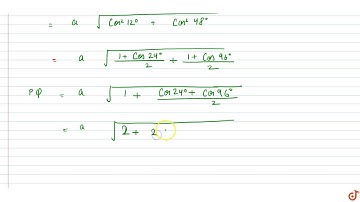 = a √(Cos² 12° + Cos² 48°)
= a √((1 + Cos 24°)/2 + (1 + Cos 96°)/2)
PQ = a √(1 + (Cos 24° + Cos 96°)/2)
= a √(2 + 2